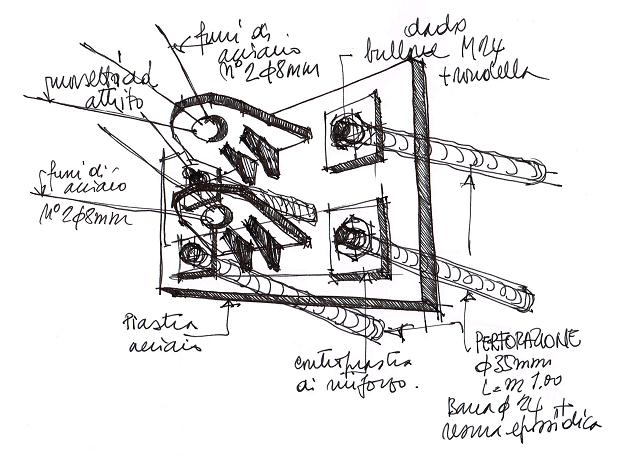 funi di
acciaio
n° 2 ϕ 8mm
dado
bullone M24
+ rondella
morsetto ad
attrito
funi di
acciaio
N° 2 ϕ 8mm
Piastra
acciaio
contropiastra
di rinforzo.
PERFORAZIONE
ϕ 35mm
L = m 1.00
Barra ϕ 24 +
resina epossidica